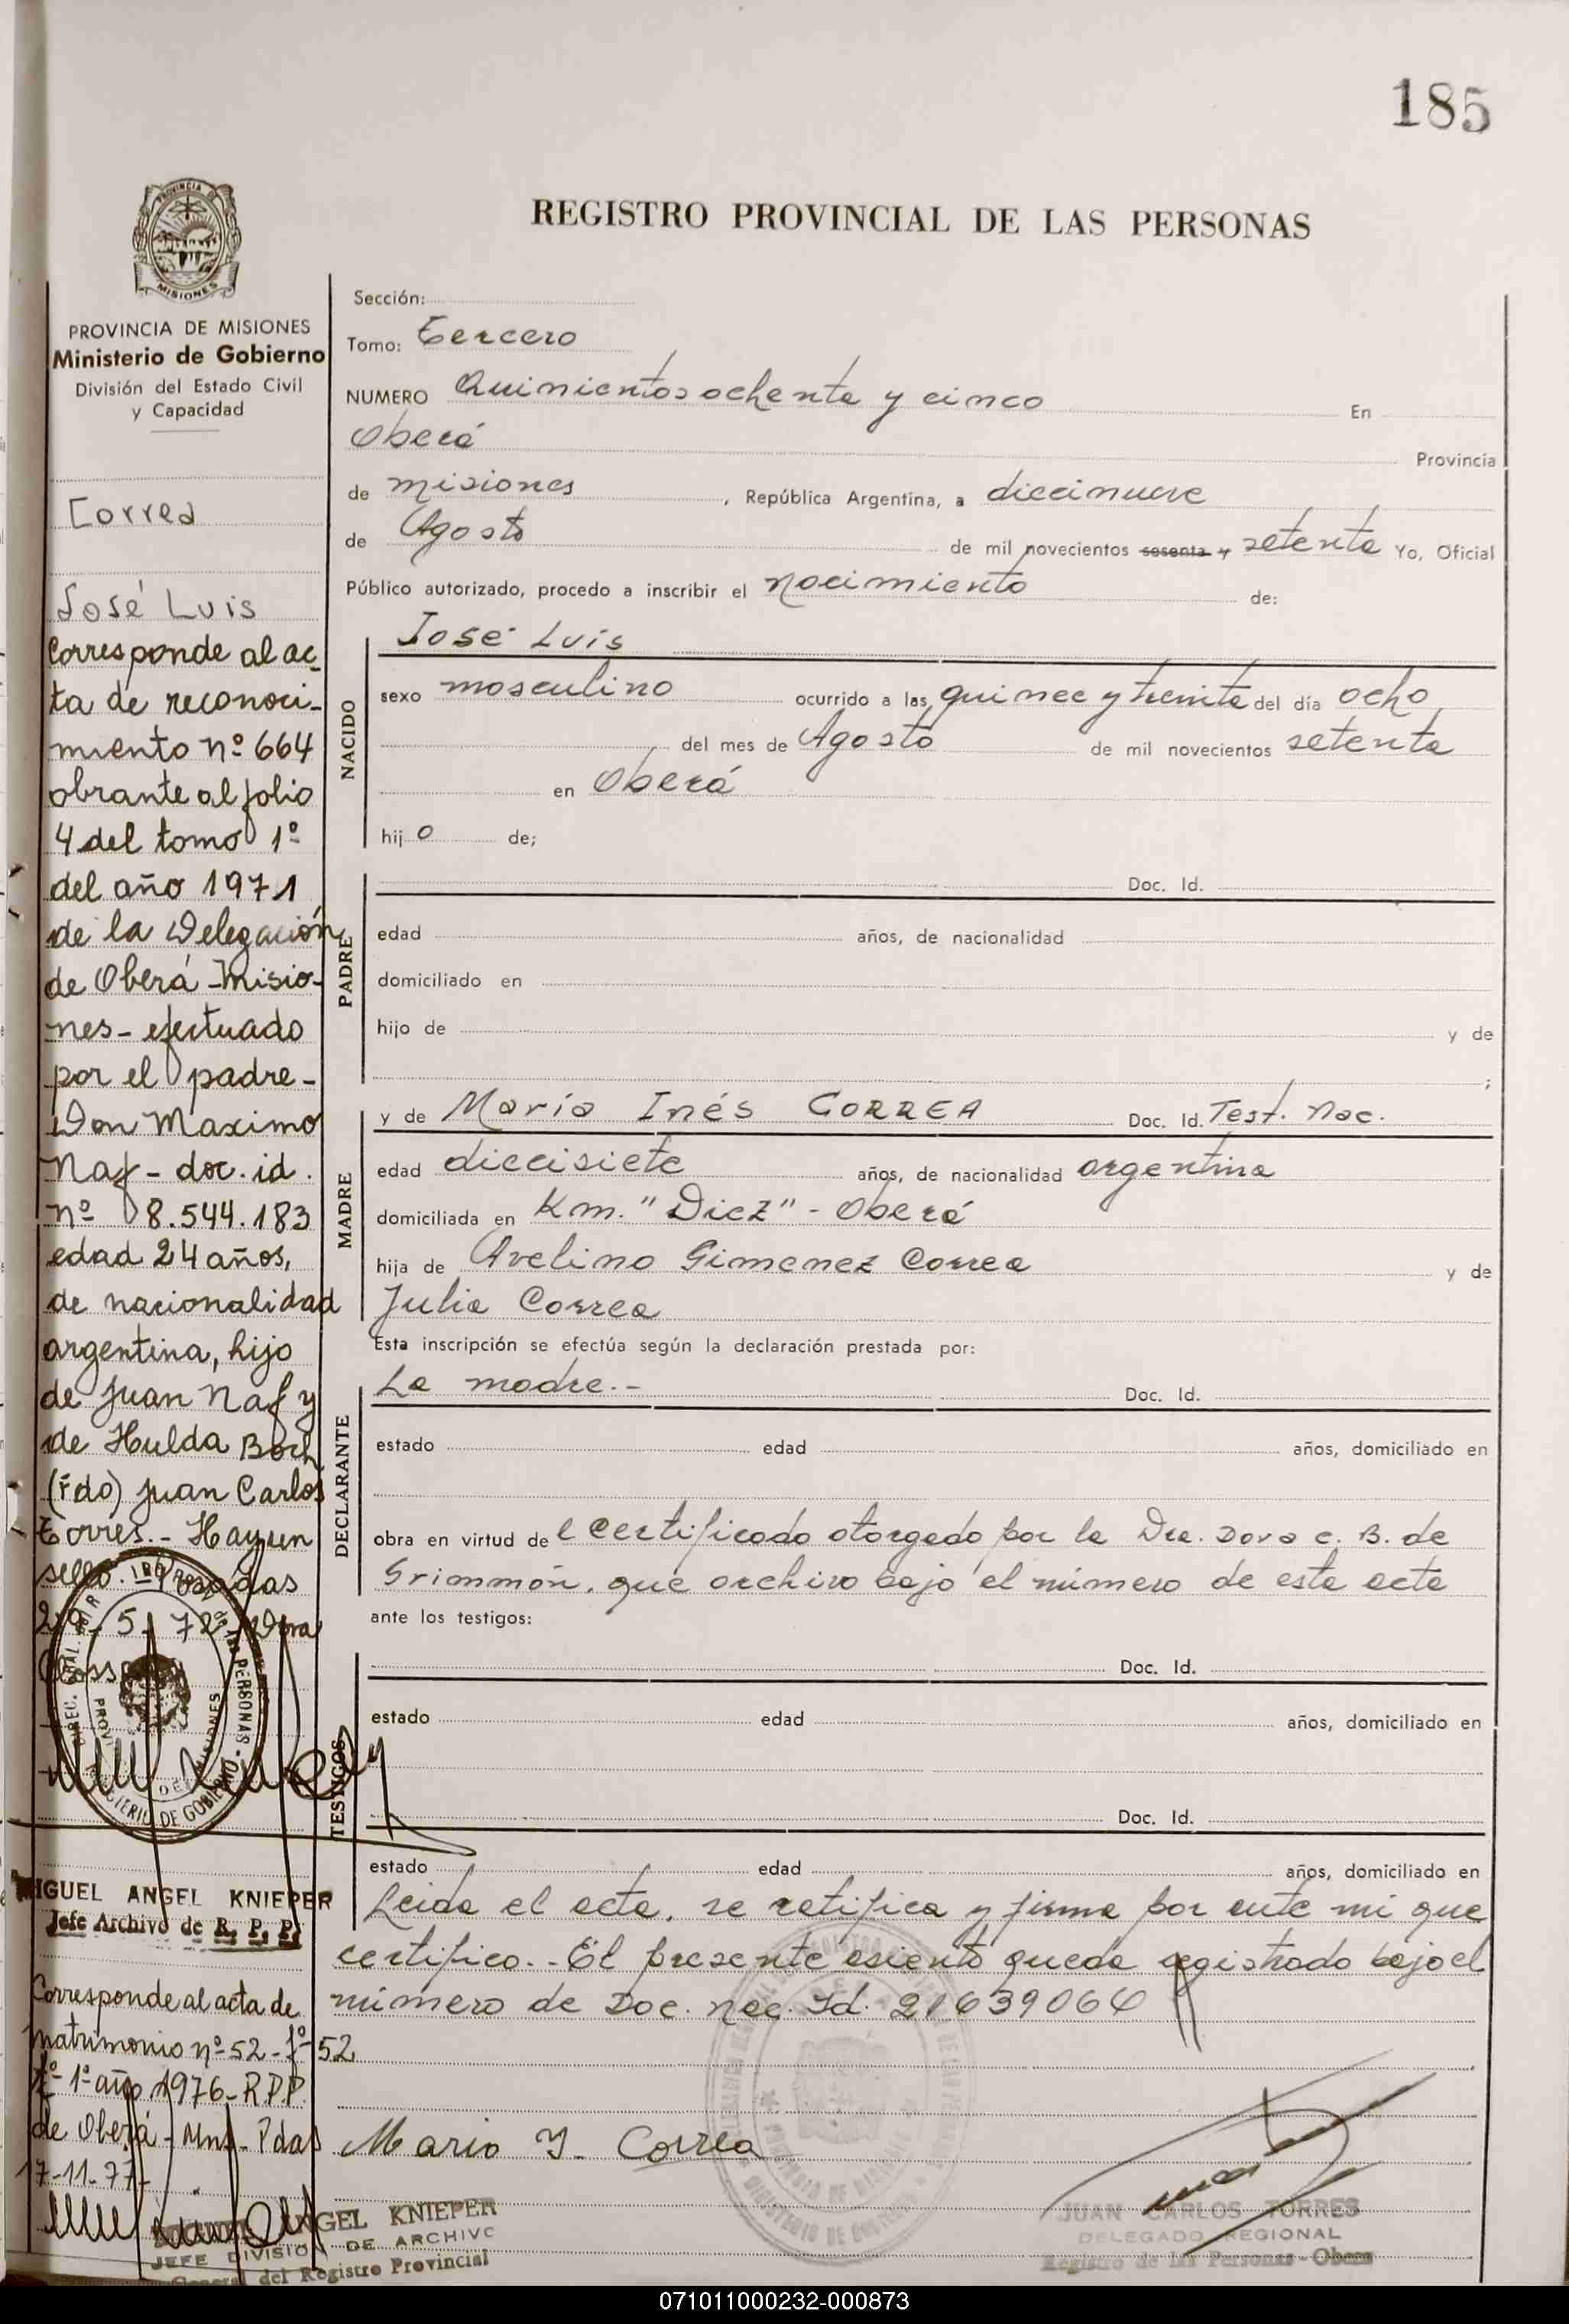 185
REGISTRO PROVINCIAL DE LAS PERSONAS
PROVINCIA DE
MISIONES
PROVINCIA DE MISIONES
Ministerio de Gobierno
División del Estado Civil
y Capacidad
Correa
José Luis
Corresponde al ac
ta de reconoci-
miento nº 664
obrante al folio
4 del tomo 1º
del año 1971
de la Delegación
de Oberá - Misio-
nes - efectuado
por el padre -
Don Maximo
Naf - doc. id.
nº 8.544.183
edad 24 años,
de nacionalidad
argentina, hijo
de Juan Naf y
de Hulda Boch
(Fdo) Juan Carlos
Torres. - Hay un
sello. Posadas
29 - 5 - 72 - Dora
MIGUEL ANGEL KNIEPER
Jefe Archivo de R. P. P.
Corresponde al acta de
matrimonio nº 52 - fº 52
tº 1º año 1976 - R.P.P.
de Oberá - Mns - Pdas
17-11-77-
ANGEL KNIEPER
JEFE DIVISION DE ARCHIVO
General del Registro Provincial
Sección:
Tomo: Tercero
NUMERO Quinientos ochenta y cinco En
Oberá Provincia
de misiones, República Argentina, a diecinueve
de Agosto de mil novecientos sesenta y setenta Yo, Oficial
Público autorizado, procedo a inscribir el nacimiento de:
NACIDO
José Luis
sexo masculino ocurrido a las quince y treinta del día ocho
del mes de Agosto de mil novecientos setenta
en Oberá
hijo de;
PADRE
Doc. Id.
edad años, de nacionalidad
domiciliado en
hijo de y de
;
MADRE
y de María Inés CORREA Doc. Id. Test. Nac.
edad diecisiete años, de nacionalidad argentina
domiciliada en Km. "Diez" - Oberá
hija de Avelino Gimenez Correa y de
Julia Correa
Esta inscripción se efectúa según la declaración prestada por:
DECLARANTE
La madre.- Doc. Id.
estado edad años, domiciliado en
obra en virtud del certificado otorgado por la Dra. Dora C. B. de
Grimmón, que archivo bajo el número de esta acta
ante los testigos:
TESTIGOS
Doc. Id.
estado edad años, domiciliado en
Doc. Id.
estado edad años, domiciliado en
Leida el acta, se ratifica y firma por ante mi que
certifico. - El presente asiento queda registrado bajo el
número de Doc. Nac. Id. 21639064
Maria I. Correa
JUAN CARLOS TORRES
DELEGADO REGIONAL
Registro de las Personas - Obera
071011000232-000873